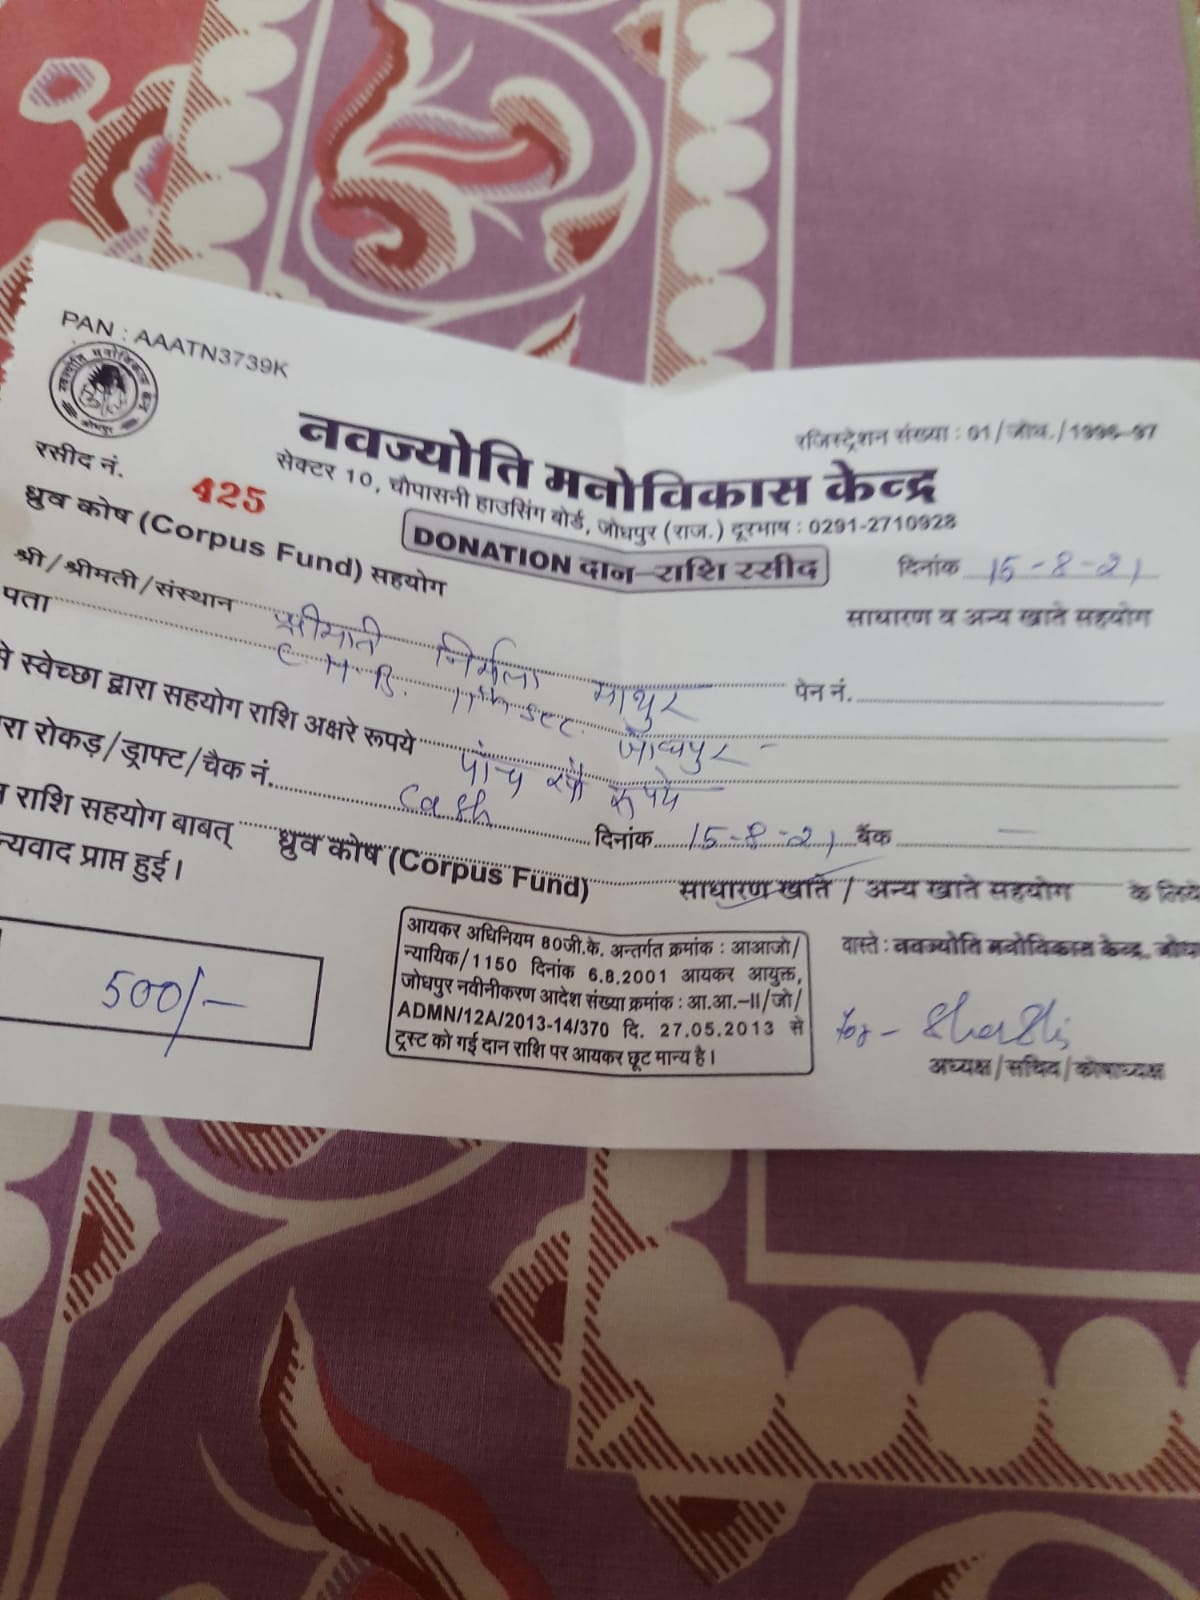 PAN : AAATN3739K
नवज्योति मनोविकास केन्द्र
जोधपुर
रजिस्ट्रेशन संख्या : 01/जोध./1996-97
नवज्योति मनोविकास केन्द्र
सेक्टर 10, चौपासनी हाउसिंग बोर्ड, जोधपुर (राज.) दूरभाष : 0291-2710928
रसीद नं. 425
DONATION दान-राशि रसीद
दिनांक 15-8-21
ध्रुव कोष (Corpus Fund) सहयोग
साधारण व अन्य खाते सहयोग
श्री/श्रीमती/संस्थान श्रीमति निर्मला माथुर पेन नं.
पता C.H.B. 11th Sec. जोधपुर -
से स्वेच्छा द्वारा सहयोग राशि अक्षरे रूपये पांच सौ रूपये
रा रोकड़/ड्राफ्ट/चैक नं. Cash दिनांक 15-8-21 बैंक —
राशि सहयोग बाबत् ध्रुव कोष (Corpus Fund) साधारण खाते / अन्य खाते सहयोग के लिये
न्यवाद प्राप्त हुई।
500/-
आयकर अधिनियम 80जी.के. अन्तर्गत क्रमांक : आआजो/
न्यायिक/1150 दिनांक 6.8.2001 आयकर आयुक्त,
जोधपुर नवीनीकरण आदेश संख्या क्रमांक : आ.आ.-II/जो/
ADMN/12A/2013-14/370 दि. 27.05.2013 से
ट्रस्ट को गई दान राशि पर आयकर छूट मान्य है।
वास्ते : नवज्योति मनोविकास केन्द्र, जोध
For - Shashi
अध्यक्ष/सचिव/कोषाध्यक्ष